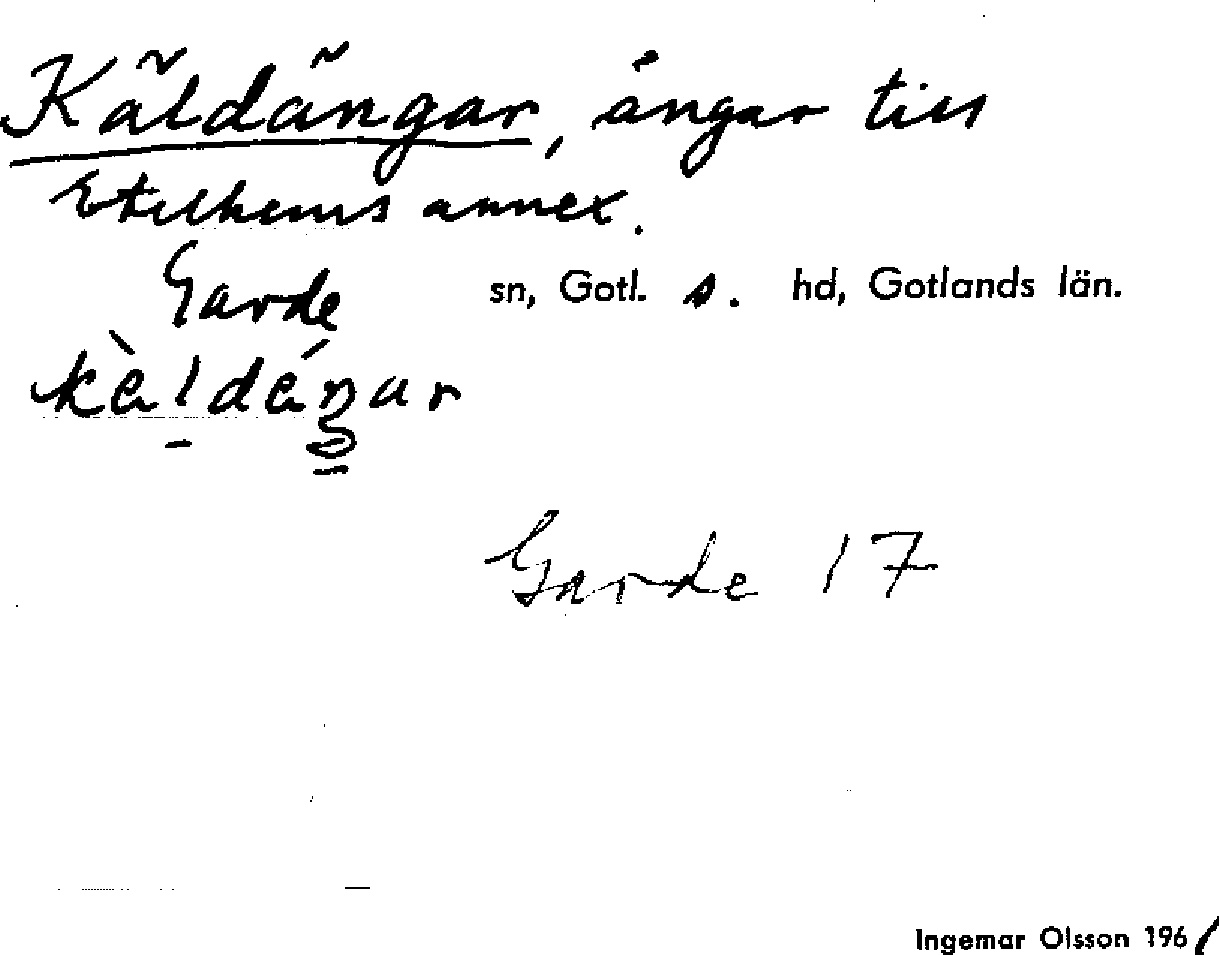 Käldängar, ängar till
Etelhems annex.
Garde sn, Gotl. s. hd, Gotlands län.
kàldáŋar
Garde 17
Ingemar Olsson 1961